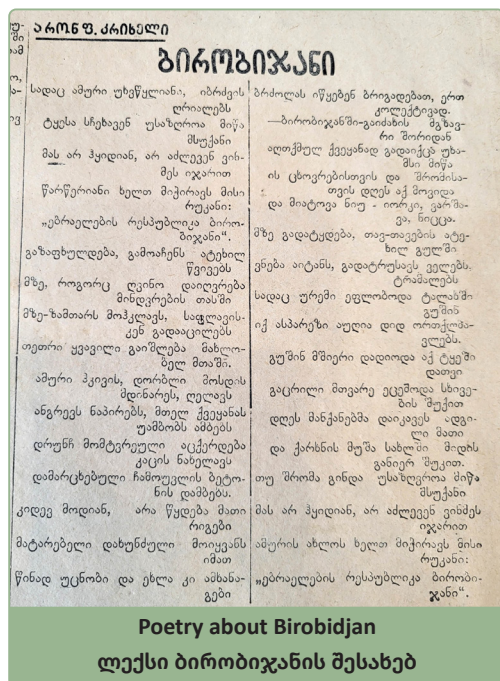 არონ ფ. კრიხელი
ბირობიჯანი
სადაც ამური უხვწყლიანი, იბრძვის
ღრიალებს
ტყესა სჩეხავენ უსაზღროა მიწა
მსუქანი
მას არ ჰყიდიან, არ აძლევენ ვინ-
მეს იჯარით
წარწერიანი ხელთ მიჭირავს მისი
რუკანი:
„ებრაელების რესპუბლიკა ბირო-
ბიჯანი“.
გაზაფხულდება, გამოაჩენს ატეხილ
წვივებს
მზე, როგორც ღვინო დაიღვრება
მინდვრების თასში
მზე-ზამთარს მოჰკლავს, საფლავის-
კენ გადააცილებს
თეთრი ყვავილი გაიშლება მახლო-
ბელ მთაში.
ამური ჰკივის, დორბლი მოსდის
მდინარეს, ღელავს
ანგრევს ნაპირებს, მთელ ქვეყანას
უამბობს ამბებს
დრუნჩ მომტვრეული აცქერდება
კაცის ნახელავს
დამარცხებული ჩამოუვლის ბეტო-
ნის დამბებს.
კიდევ მოდიან, არა წყდება მათი
რიგები
მატარებელი დახუნძული მოიყვანს
იმათ
წინად უცნობი და ეხლა კი ამხანა-
გები
ბრძოლას იწყებენ ბრიგადებათ, ერთ
კოლექტივად.
—ბირობიჯანში-გაიძახის მგზავ-
რი შორიდან
აღთქმულ ქვეყანად გადაიქცა უხა-
მსი მიწა
ის ცხოვრებისთვის და შრომისა-
თვის დღეს აქ მოვიდა
და მიატოვა ნიუ - იორკი, ვარშა-
ვა, ნიცცა.
მზე გადატყდება, თავ-თავების ატე-
ხილ გულში
ვნება აიტანს, გადატრუსავს ველებს.
ტრამალებს
სადაც ურემი ეფლობოდა ტალახში
გუშინ
იქ ასპარეზი აუღია დიდ ორთქლმა-
ვლებს.
გუშინ მშიერი დადიოდა აქ ტყეში
დათვი
გაცრილი მთვარე ეცემოდა სხივე-
ბის შუქით
დღეს მანქანებმა დაიკავეს ადგი-
ლი მათი
და ქარხნის მუშა სახლში მიდის
განიერ შუკით.
თუ შრომა გინდა უსაზღვროა მიწა
მსუქანი
მას არ ჰყიდიან, არ აძლევენ ვინმეს
იჯარით
ამურის ახლოს ხელთ მიჭირავს მისი
რუკანი:
„ებრაელების რესპუბლიკა ბირობი-
ჯანი“.
Poetry about Birobidjan
ლექსი ბირობიჯანის შესახებ